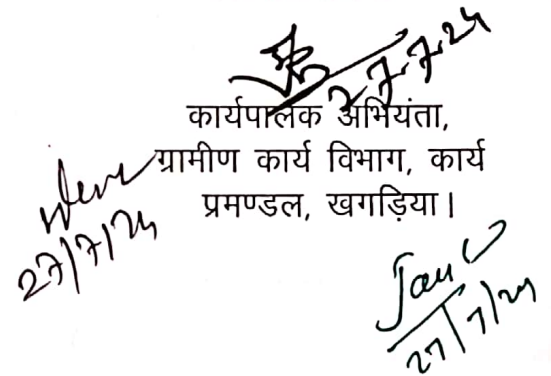 27.7.24
कार्यपालक अभियंता,
ग्रामीण कार्य विभाग, कार्य
प्रमण्डल, खगड़िया।
27/7/24
27/7/24